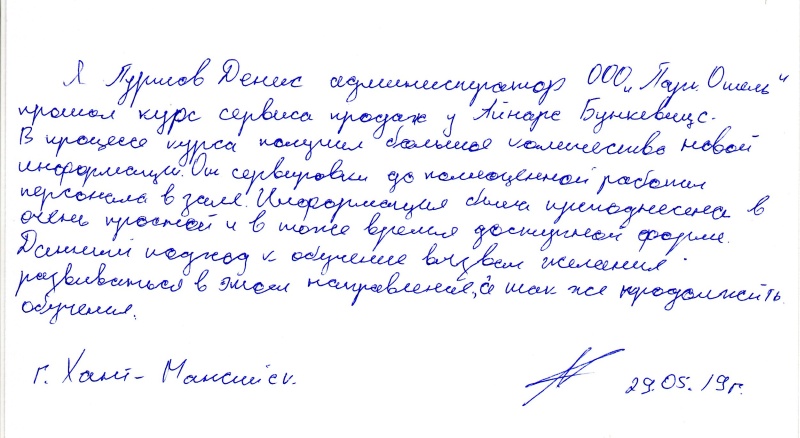 Я Пурилов Денис администратор ООО „Парк Отель"
прошол курс сервиса продаж у Айнарс Бункевицс.
В процессе курса получил большое количество новой
информации. От сервировки до полноценной работы
персонала в зале. Информация была преподнесена в
очень простой и в тоже время доступной форме.
Данный подход к обучение вызвал желания
развиваться в этом направление, а так же продолжить
обучения.
г. Хант-Мансийск.
29.05.19г.